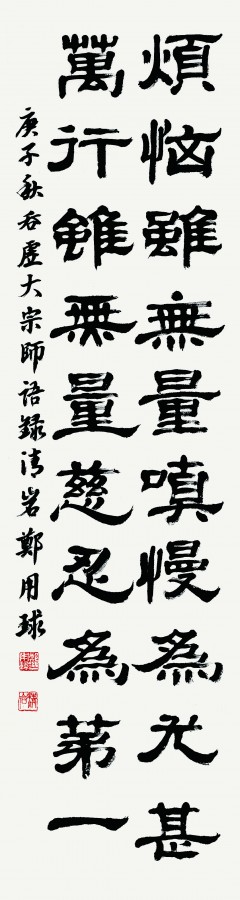 煩惱雖無量嗔慢為尤甚
萬行雖無量慈忍為第一
庚子秋吞虛大宗師語錄清岩鄭用球